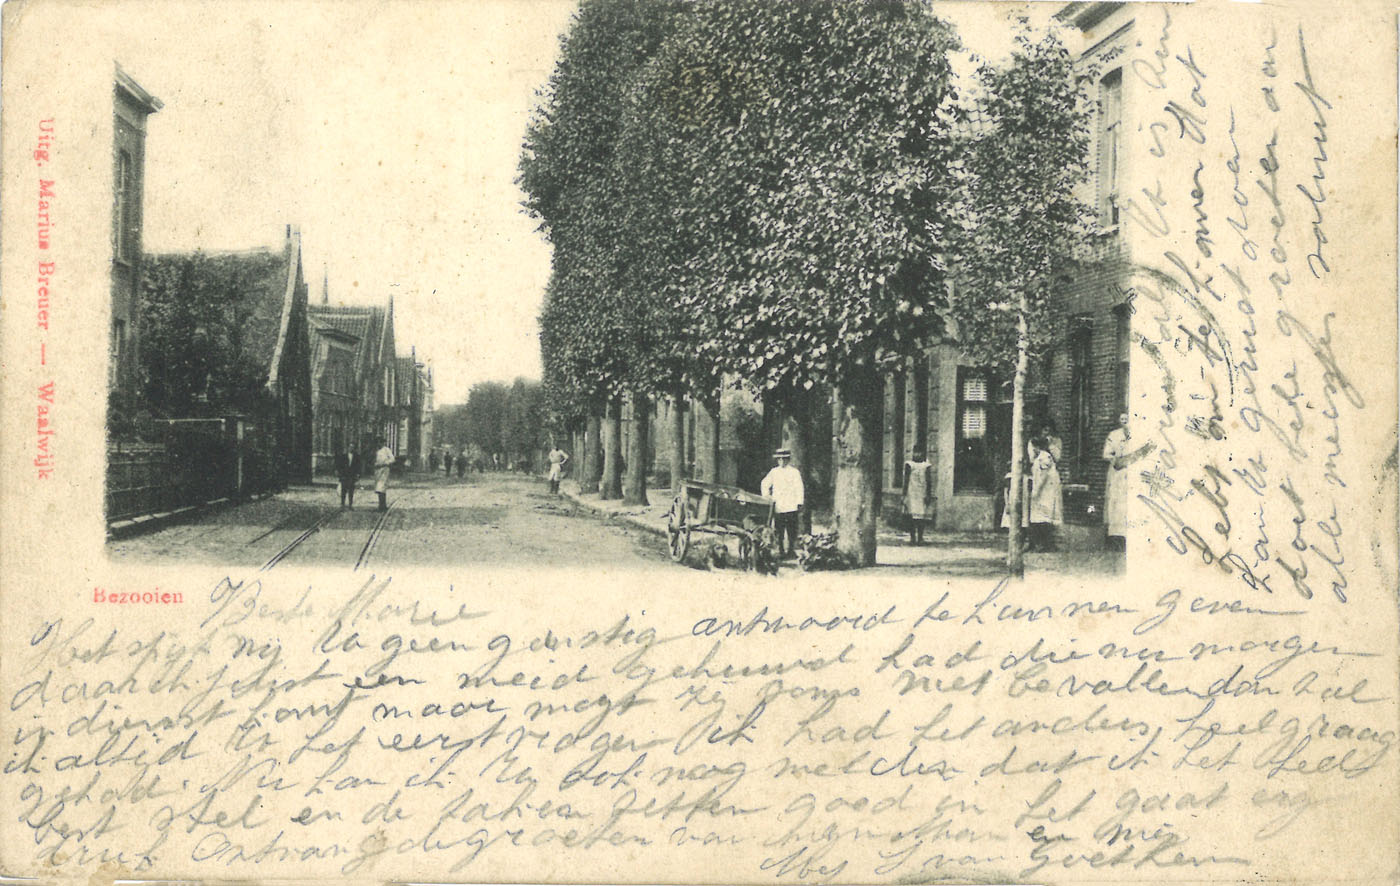 Uitg. Marius Breuer — Waalwijk
Bezooien
Beste Marie
Het spijt mij U geen gunstig antwoord te kunnen geven
daar ik juist een meid gehuurd had die nu morgen
in dienst komt maar mogt ze soms niet bevallen dan zal
ik altijd U het eerst vragen ik had het anders heel graag
gehad. Nu kan ik U ook nog melden dat ik het heel
best stel en de zaken zitten goed in het gaat erg
druk Ontvang de groeten van mijn Man en mij
van
Marie
Zebt komen Hot
kan U gerust doen
doet bijde groeten aan
alle meisjes saluut